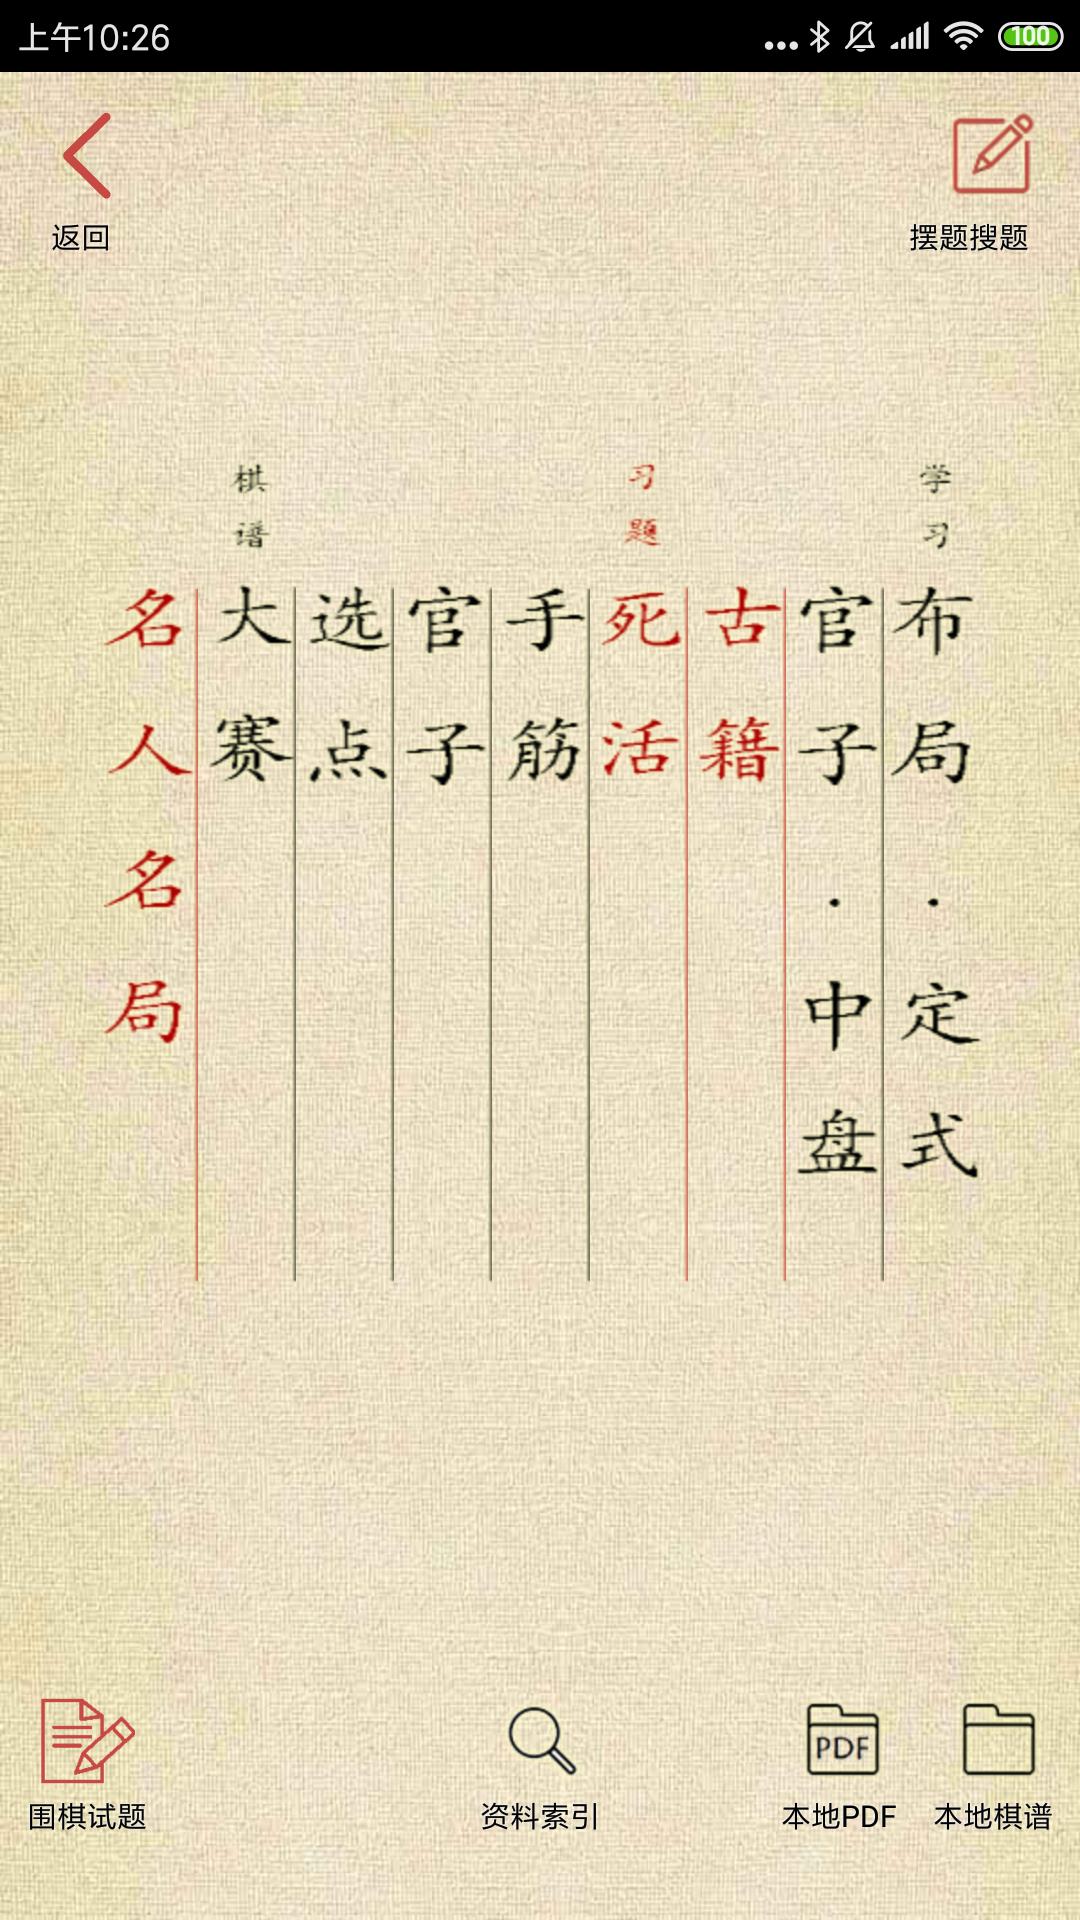 上午10:26
100
返回
摆题搜题
学习
布局·定式
官子·中盘
习题
古籍
死活
手筋
官子
选点
棋谱
大赛
名人名局
围棋试题
资料索引
PDF
本地PDF
本地棋谱